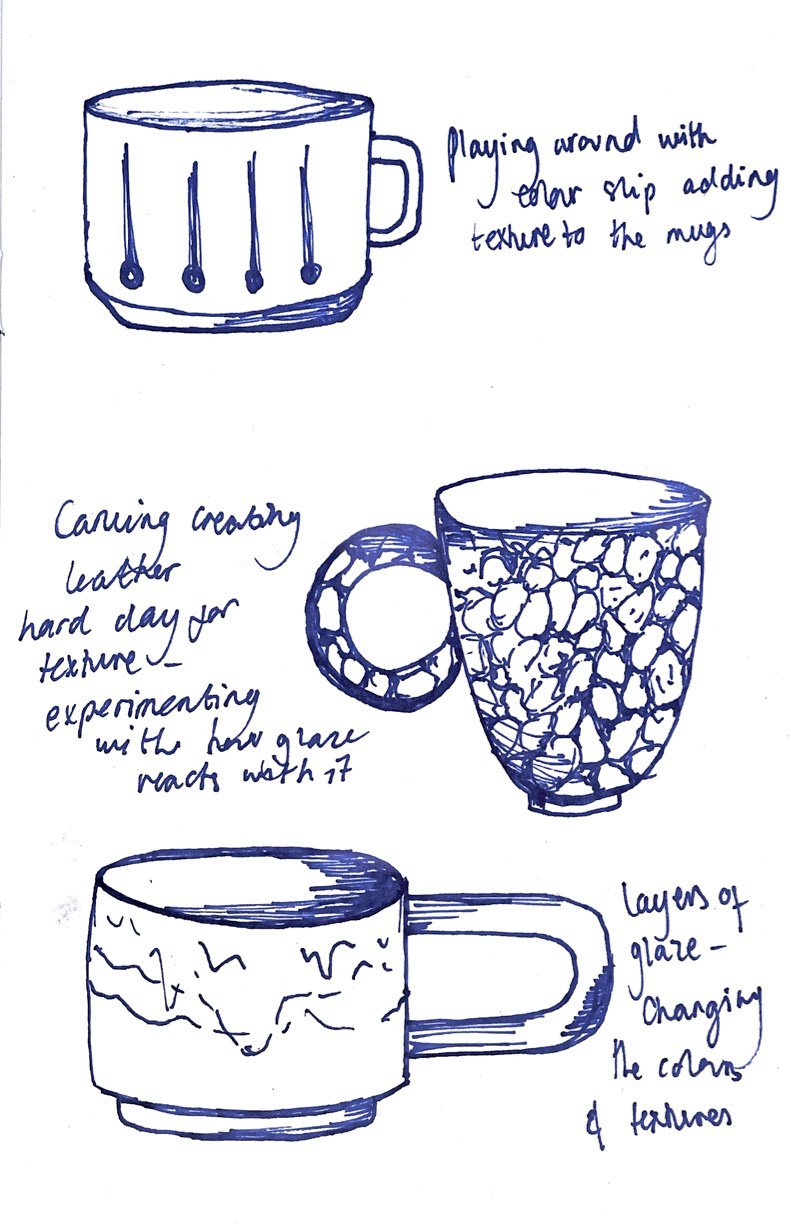 Playing around with
colour slip adding
texture to the mugs
Carving creating
leather
hard clay for
texture -
experimenting
with how glaze
reacts with it
Layers of
glaze -
Changing
the colours
& textures